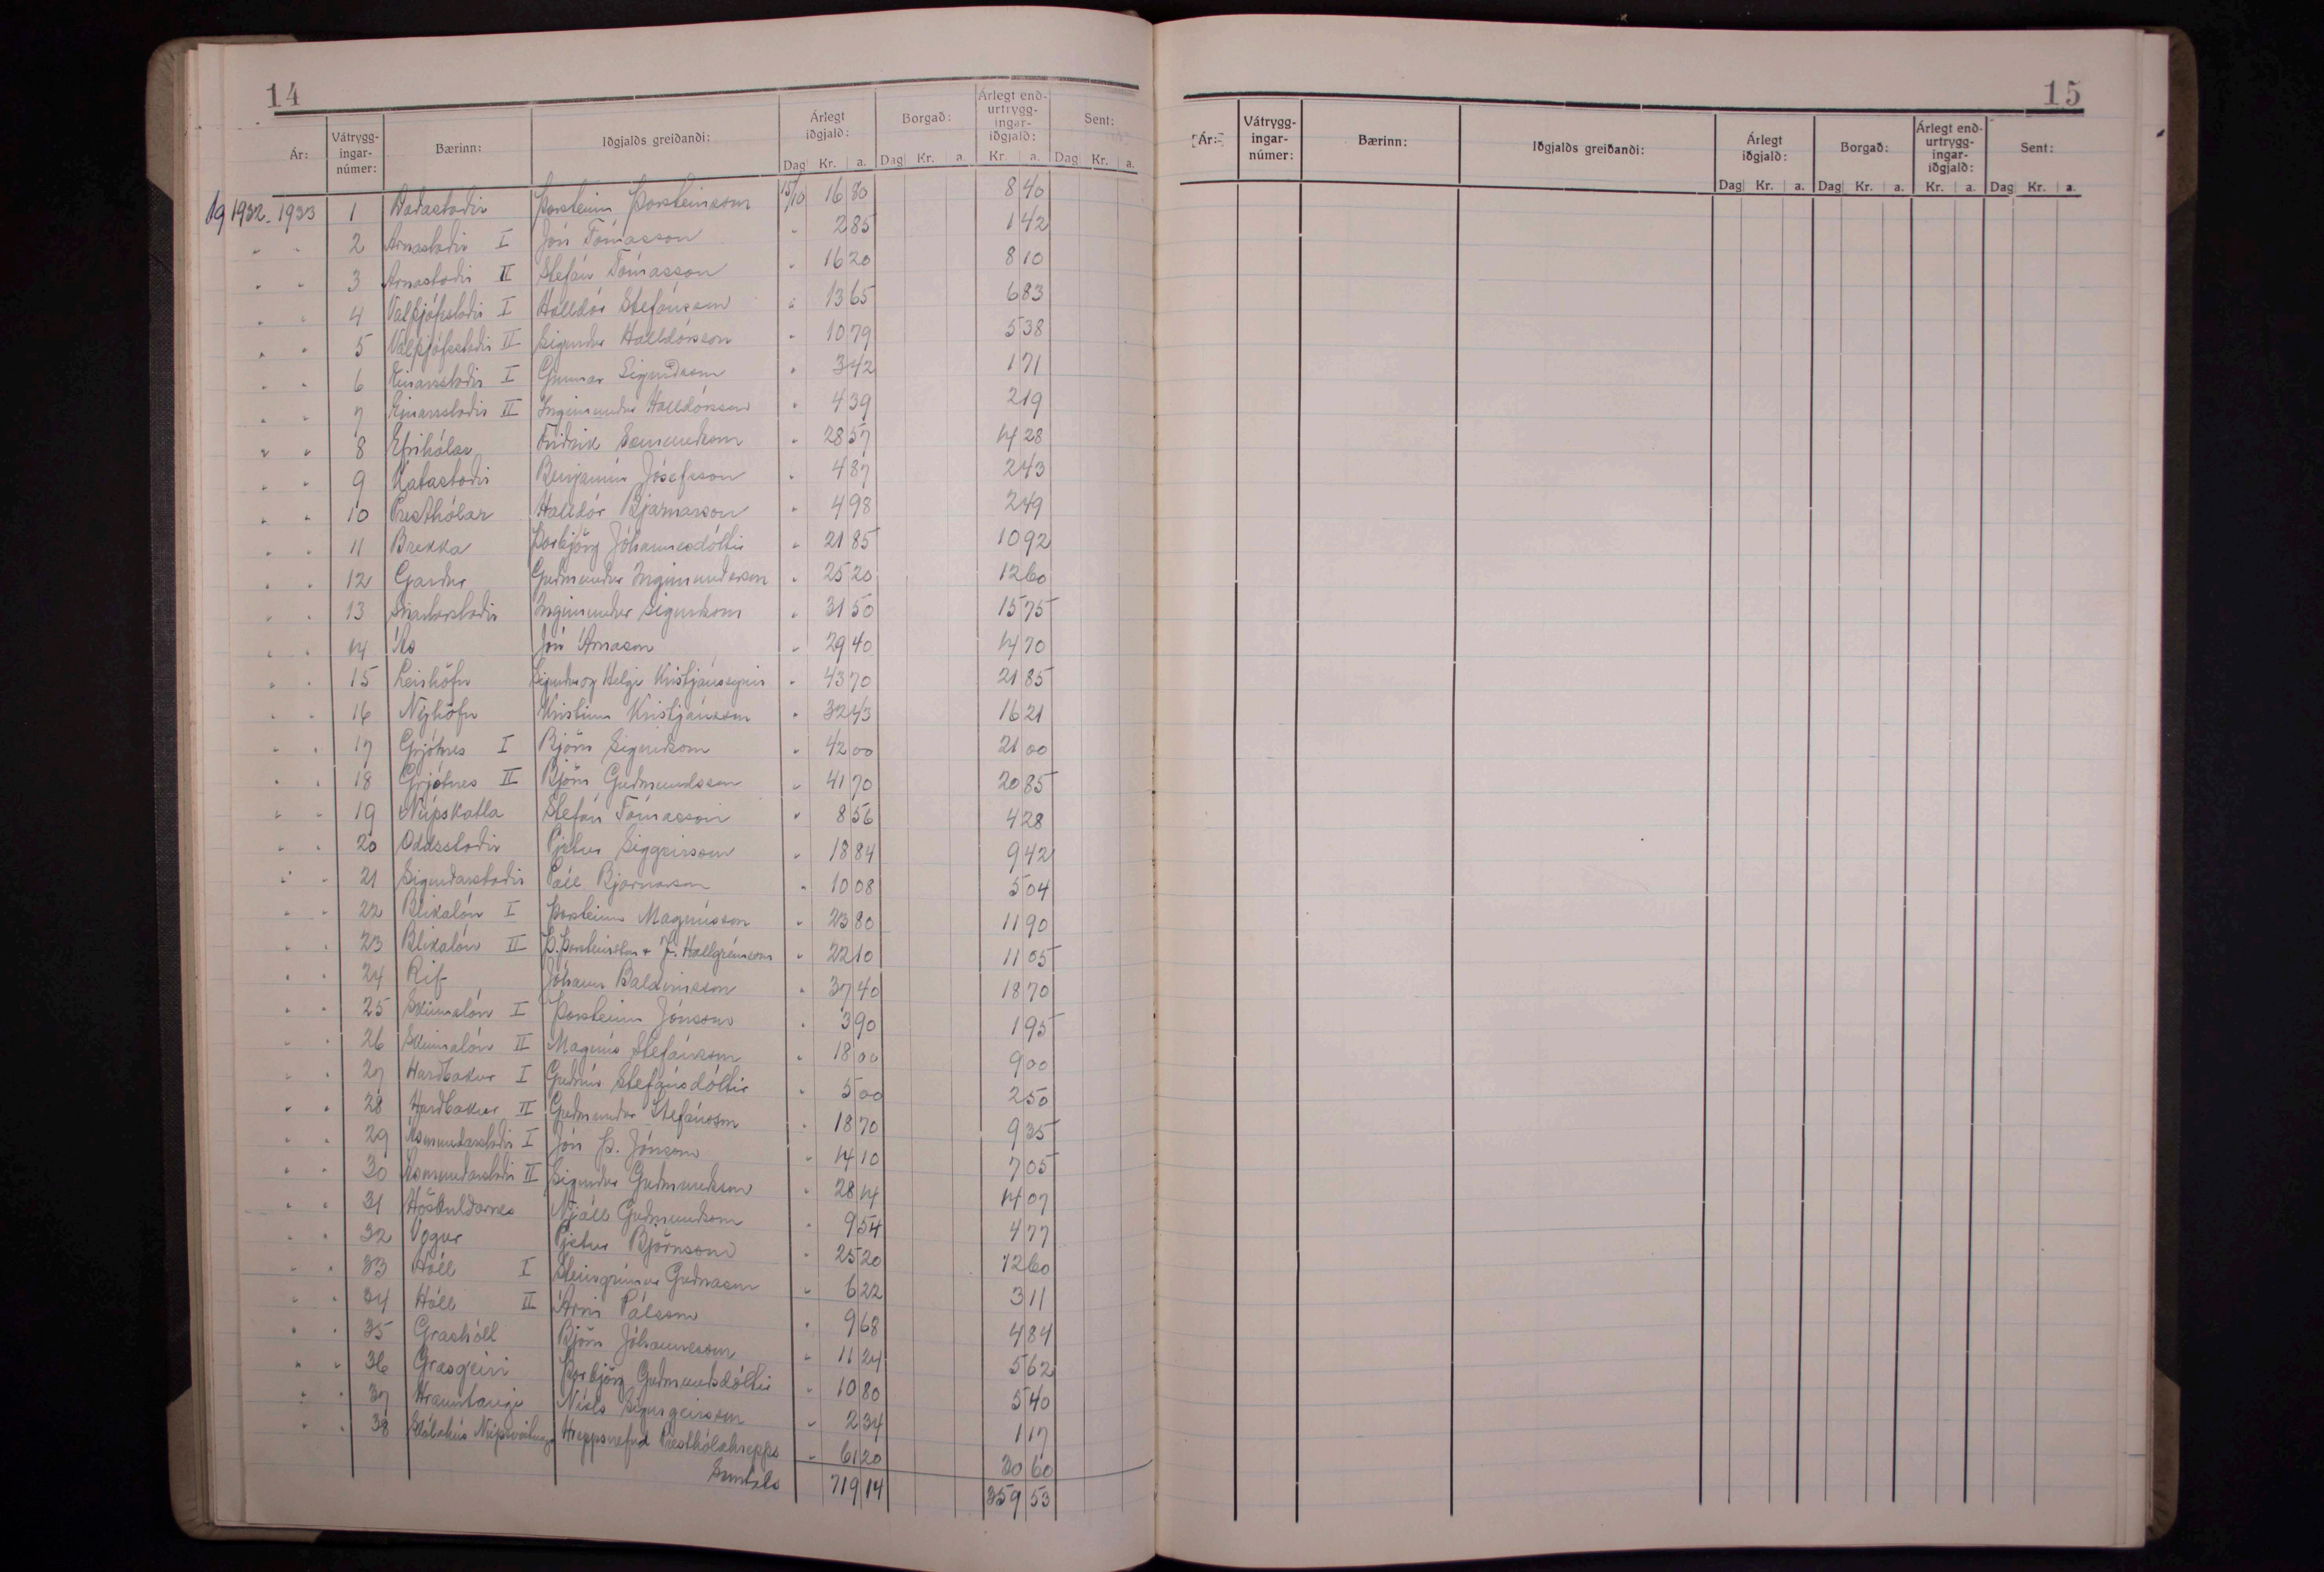 14
Ár: Vátrygg-ingar-númer: Bærinn: Iðgjalds greiðandi: Árlegt iðgjald: Borgað: Árlegt end-urtrygg-ingar-iðgjald: Sent:
Dag Kr. a. Dag Kr. a. Kr. a. Dag Kr. a.
19 1932-1933 1 Daðastaðir Þorsteinn Þorsteinsson 15/10 16 80 8 40
" " 2 Arnastaðir I Jón Tómasson " 2 85 1 42
" " 3 Arnastaðir II Stefán Tómasson " 16 20 8 10
" " 4 Valþjófsstaðir I Halldór Stefánsson " 13 65 6 83
" " 5 Valþjófsstaðir II Sigurður Halldórsson " 10 79 5 38
" " 6 Einarsstaðir I Gunnar Sigurðsson " 3 42 1 71
" " 7 Einarsstaðir II Ingimundur Halldórsson " 4 39 2 19
" " 8 Efrihólar Friðrik Sæmundsson " 28 57 14 28
" " 9 Katastaðir Benjamín Jósefsson " 4 87 2 43
" " 10 Presthólar Halldór Bjarnarson " 4 98 2 49
" " 11 Brekka Þorbjörg Jóhannesdóttir " 21 85 10 92
" " 12 Garður Guðmundur Ingimundarson " 25 20 12 60
" " 13 Snartarstaðir Ingimundur Sigurðsson " 31 50 15 75
" " 14 Ás Jón Árnason " 29 40 14 70
" " 15 Leirhöfn Sigurður og Helgi Kristjánssynir " 43 70 21 85
" " 16 Nýhöfn Kristinn Kristjánsson " 32 43 16 21
" " 17 Grjótnes I Björn Sigurðsson " 42 00 21 00
" " 18 Grjótnes II Björn Guðmundsson " 41 70 20 85
" " 19 Núpskatla Stefán Tómasson " 8 56 4 28
" " 20 Oddsstaðir Pjetur Siggeirsson " 18 84 9 42
" " 21 Sigurðarstaðir Páll Bjarnason " 10 08 5 04
" " 22 Blikalón I Þorsteinn Magnússon " 23 80 11 90
" " 23 Blikalón II Þ. Þorsteinsson & J. Hallgrímsson " 22 10 11 05
" " 24 Rif Jóhann Baldvinsson " 37 40 18 70
" " 25 Skinnalón I Þorsteinn Jónsson " 3 90 1 95
" " 26 Skinnalón II Magnús Stefánsson " 18 00 9 00
" " 27 Harðbakur I Guðrún Stefánsdóttir " 5 00 2 50
" " 28 Harðbakur II Guðmundur Stefánsson " 18 70 9 35
" " 29 Ásmundarstaðir I Jón Þ. Jónsson " 14 10 7 05
" " 30 Ásmundarstaðir II Sigurður Guðmundsson " 28 14 14 07
" " 31 Höskuldarnes Njáll Guðmundsson " 9 54 4 77
" " 32 Vogur Pjetur Björnsson " 25 20 12 60
" " 33 Hóll I Steingrímur Guðnason " 6 22 3 11
" " 34 Hóll II Árni Pálsson " 9 68 4 84
" " 35 Grashóll Björn Jóhannesson " 11 24 5 62
" " 36 Grasgeiri Þorbjörg Guðmundsdóttir " 10 80 5 40
" " 37 Hrauntangi Níels Sigurgeirsson " 2 34 1 17
" " 38 Skólahús Núpsveitunga Hreppsnefnd Presthólahrepps " 61 20 30 60
Samtals 719 14 359 53
15
Ár: Vátrygg-ingar-númer: Bærinn: Iðgjalds greiðandi: Árlegt iðgjald: Borgað: Árlegt end-urtrygg-ingar-iðgjald: Sent:
Dag Kr. a. Dag Kr. a. Kr. a. Dag Kr. a.